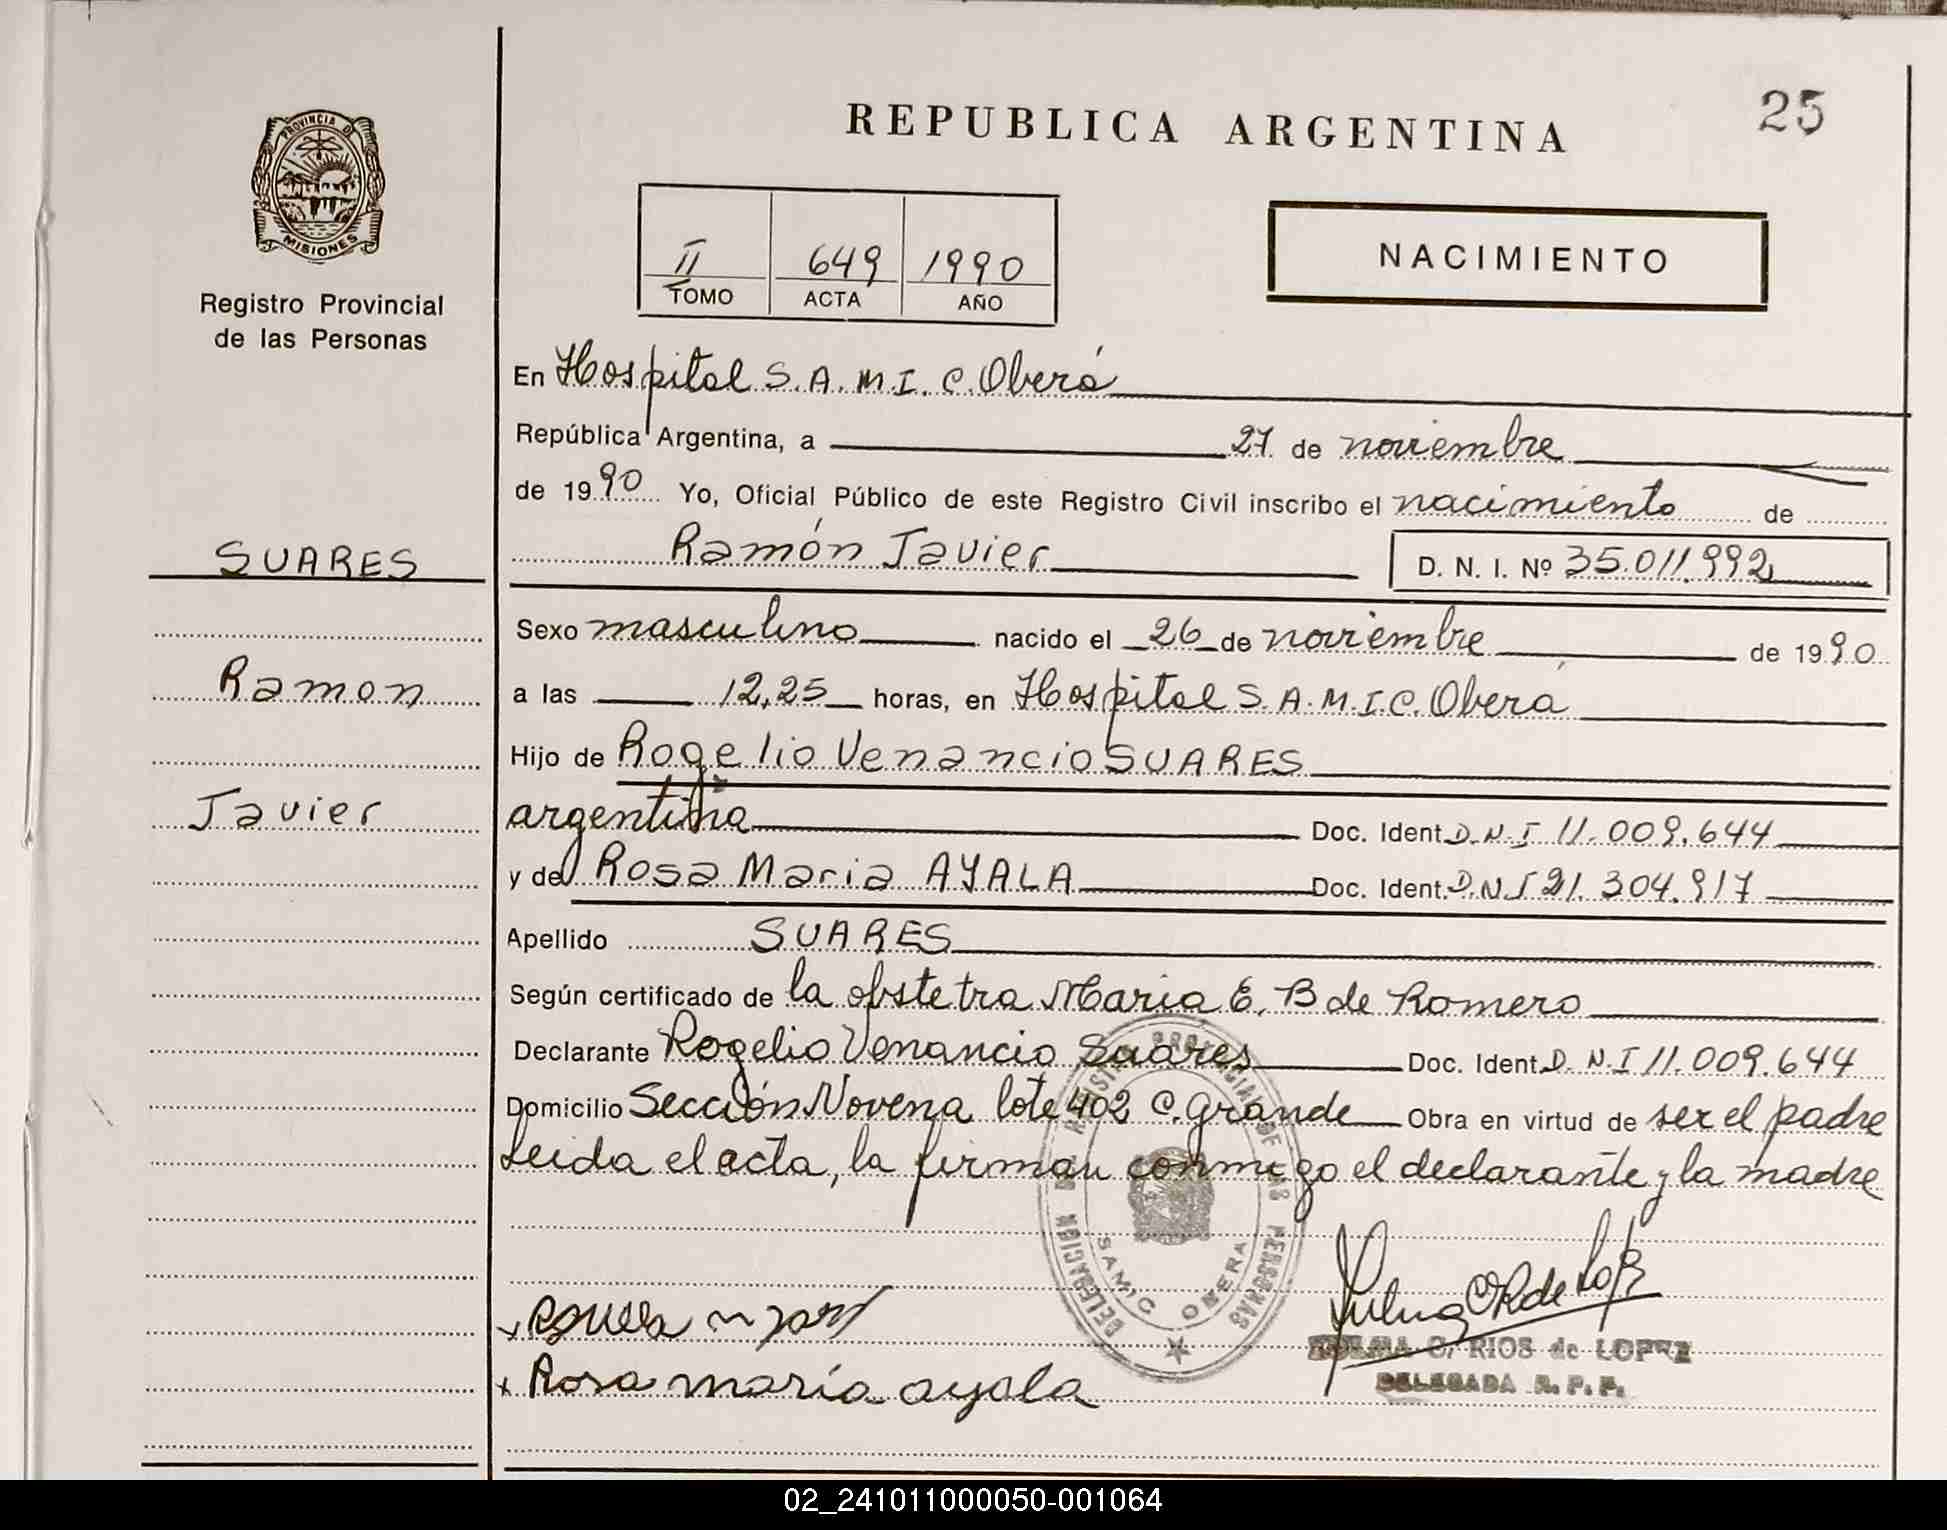 REPUBLICA ARGENTINA
25
PROVINCIA DE
MISIONES
Registro Provincial
de las Personas
II 649 1990
TOMO ACTA AÑO
NACIMIENTO
En Hospital S.A.M.I.C. Oberá
República Argentina, a 27 de noviembre
de 1990 Yo, Oficial Público de este Registro Civil inscribo el nacimiento de
SUARES
Ramón Javier D. N. I. Nº 35.011.992
Sexo masculino nacido el 26 de noviembre de 1990
Ramon
a las 12,25 horas, en Hospital S.A.M.I.C. Oberá
Hijo de Rogelio Venancio SUARES
Javier
argentina Doc. Ident. D.N.I 11.009.644
y de Rosa Maria AYALA Doc. Ident. D.N.I 21.304.917
Apellido SUARES
Según certificado de la obstetra Maria E. B de Romero
Declarante Rogelio Venancio Suares Doc. Ident. D.N.I 11.009.644
Domicilio Sección Novena lote 402 C. Grande Obra en virtud de ser el padre
Leida el acta, la firman conmigo el declarante y la madre
DELEGACION REGISTRO PROVINCIAL DE LAS PERSONAS
SAMIC OBERA
C. RIOS de LOPEZ
DELEGADA R. P. P.
x Rosa maría ayala
02_241011000050-001064